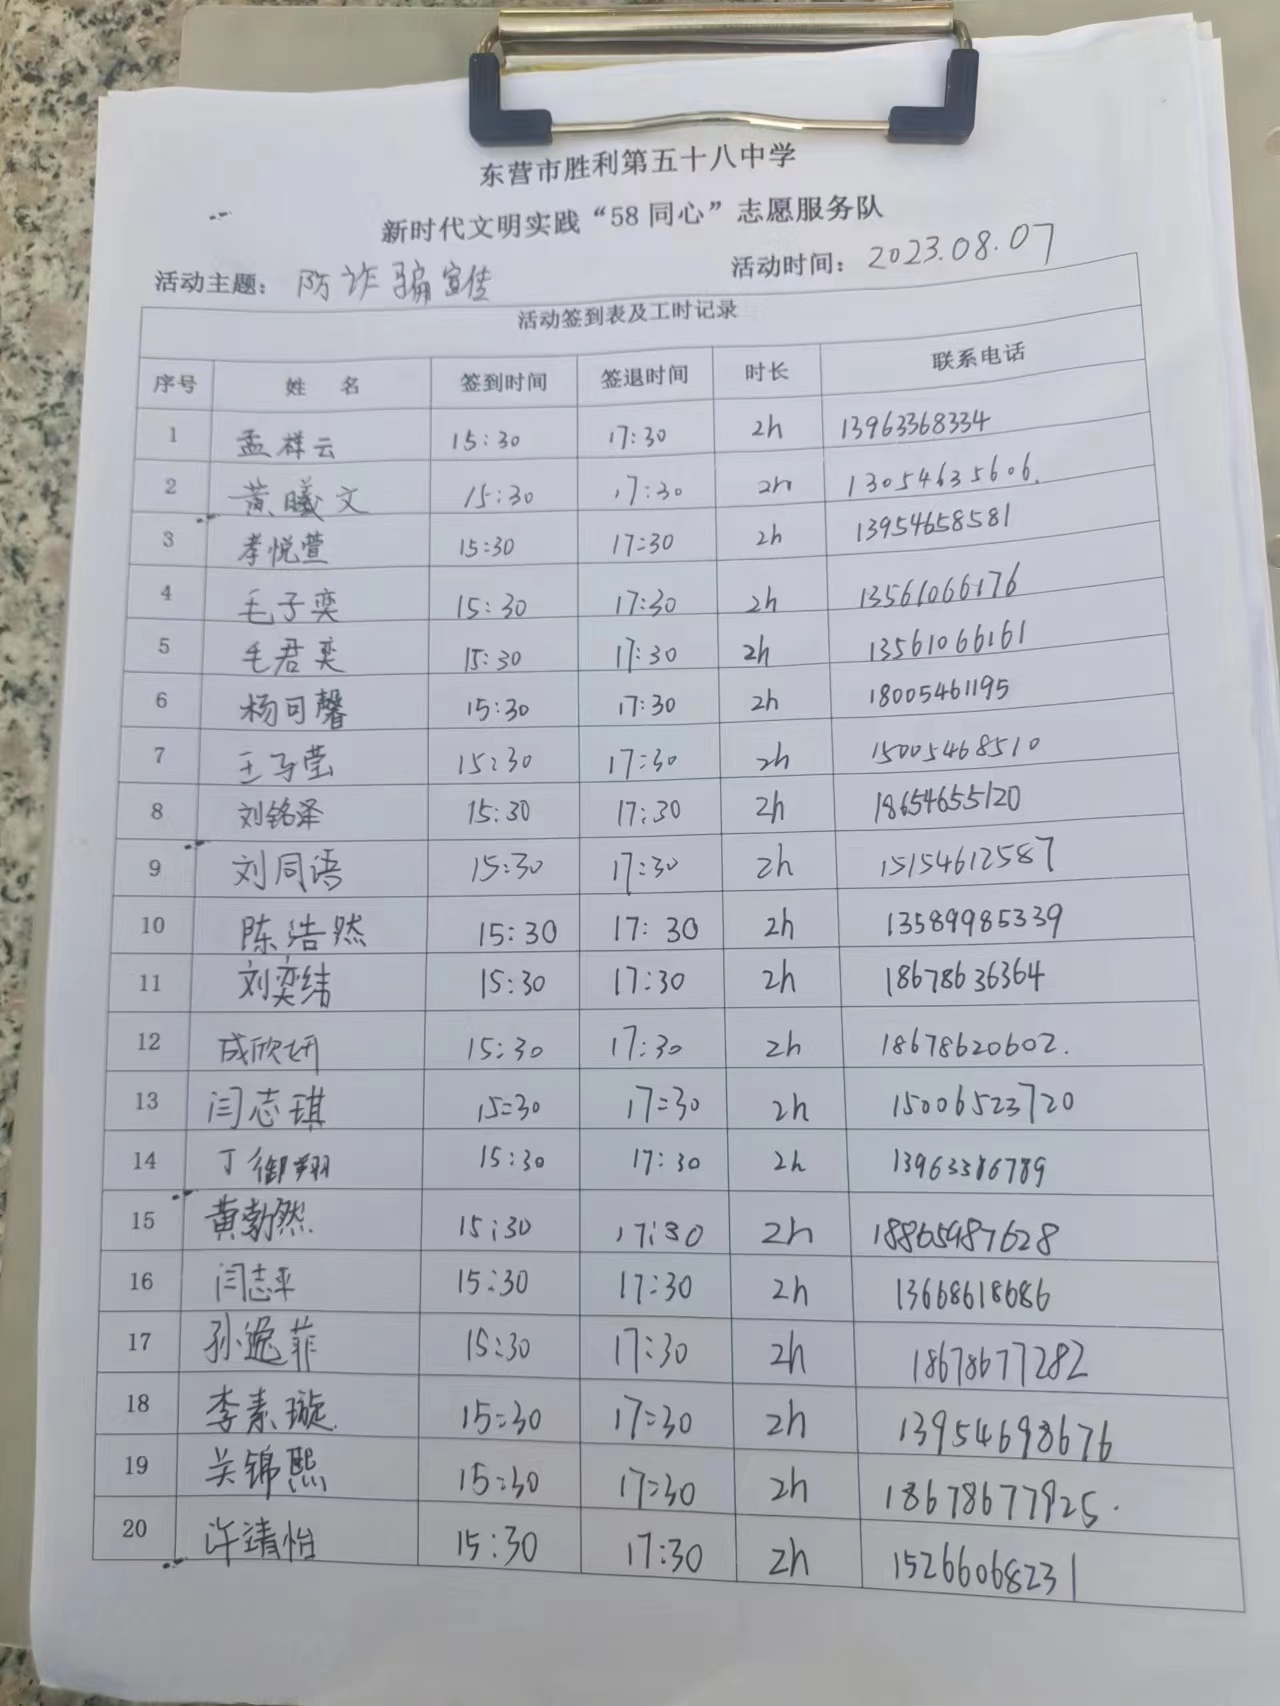 东营市胜利第五十八中学
新时代文明实践“58同心”志愿服务队
活动主题：防诈骗宣传 活动时间：2023.08.07
活动签到表及工时记录
序号 姓 名 签到时间 签退时间 时长 联系电话
1 孟祥云 15:30 17:30 2h 13963368334
2 黄曦文 15:30 17:30 2h 13054635606.
3 李悦萱 15:30 17:30 2h 13954658581
4 毛子奕 15:30 17:30 2h 13561066176
5 毛君奕 15:30 17:30 2h 13561066161
6 杨可馨 15:30 17:30 2h 18005461195
7 王子莹 15:30 17:30 2h 15005468510
8 刘铭泽 15:30 17:30 2h 18654655120
9 刘同语 15:30 17:30 2h 15154612587
10 陈浩然 15:30 17:30 2h 13589985339
11 刘奕纬 15:30 17:30 2h 18678636364
12 成欣妍 15:30 17:30 2h 18678620602.
13 闫志琪 15:30 17:30 2h 15006523720
14 丁御翔 15:30 17:30 2h 13963386789
15 黄勃然 15:30 17:30 2h 18865487628
16 闫志平 15:30 17:30 2h 13668618686
17 孙逸菲 15:30 17:30 2h 18678677282
18 李素璇 15:30 17:30 2h 13954698676
19 关锦熙 15:30 17:30 2h 18678677925.
20 许靖怡 15:30 17:30 2h 15266068231